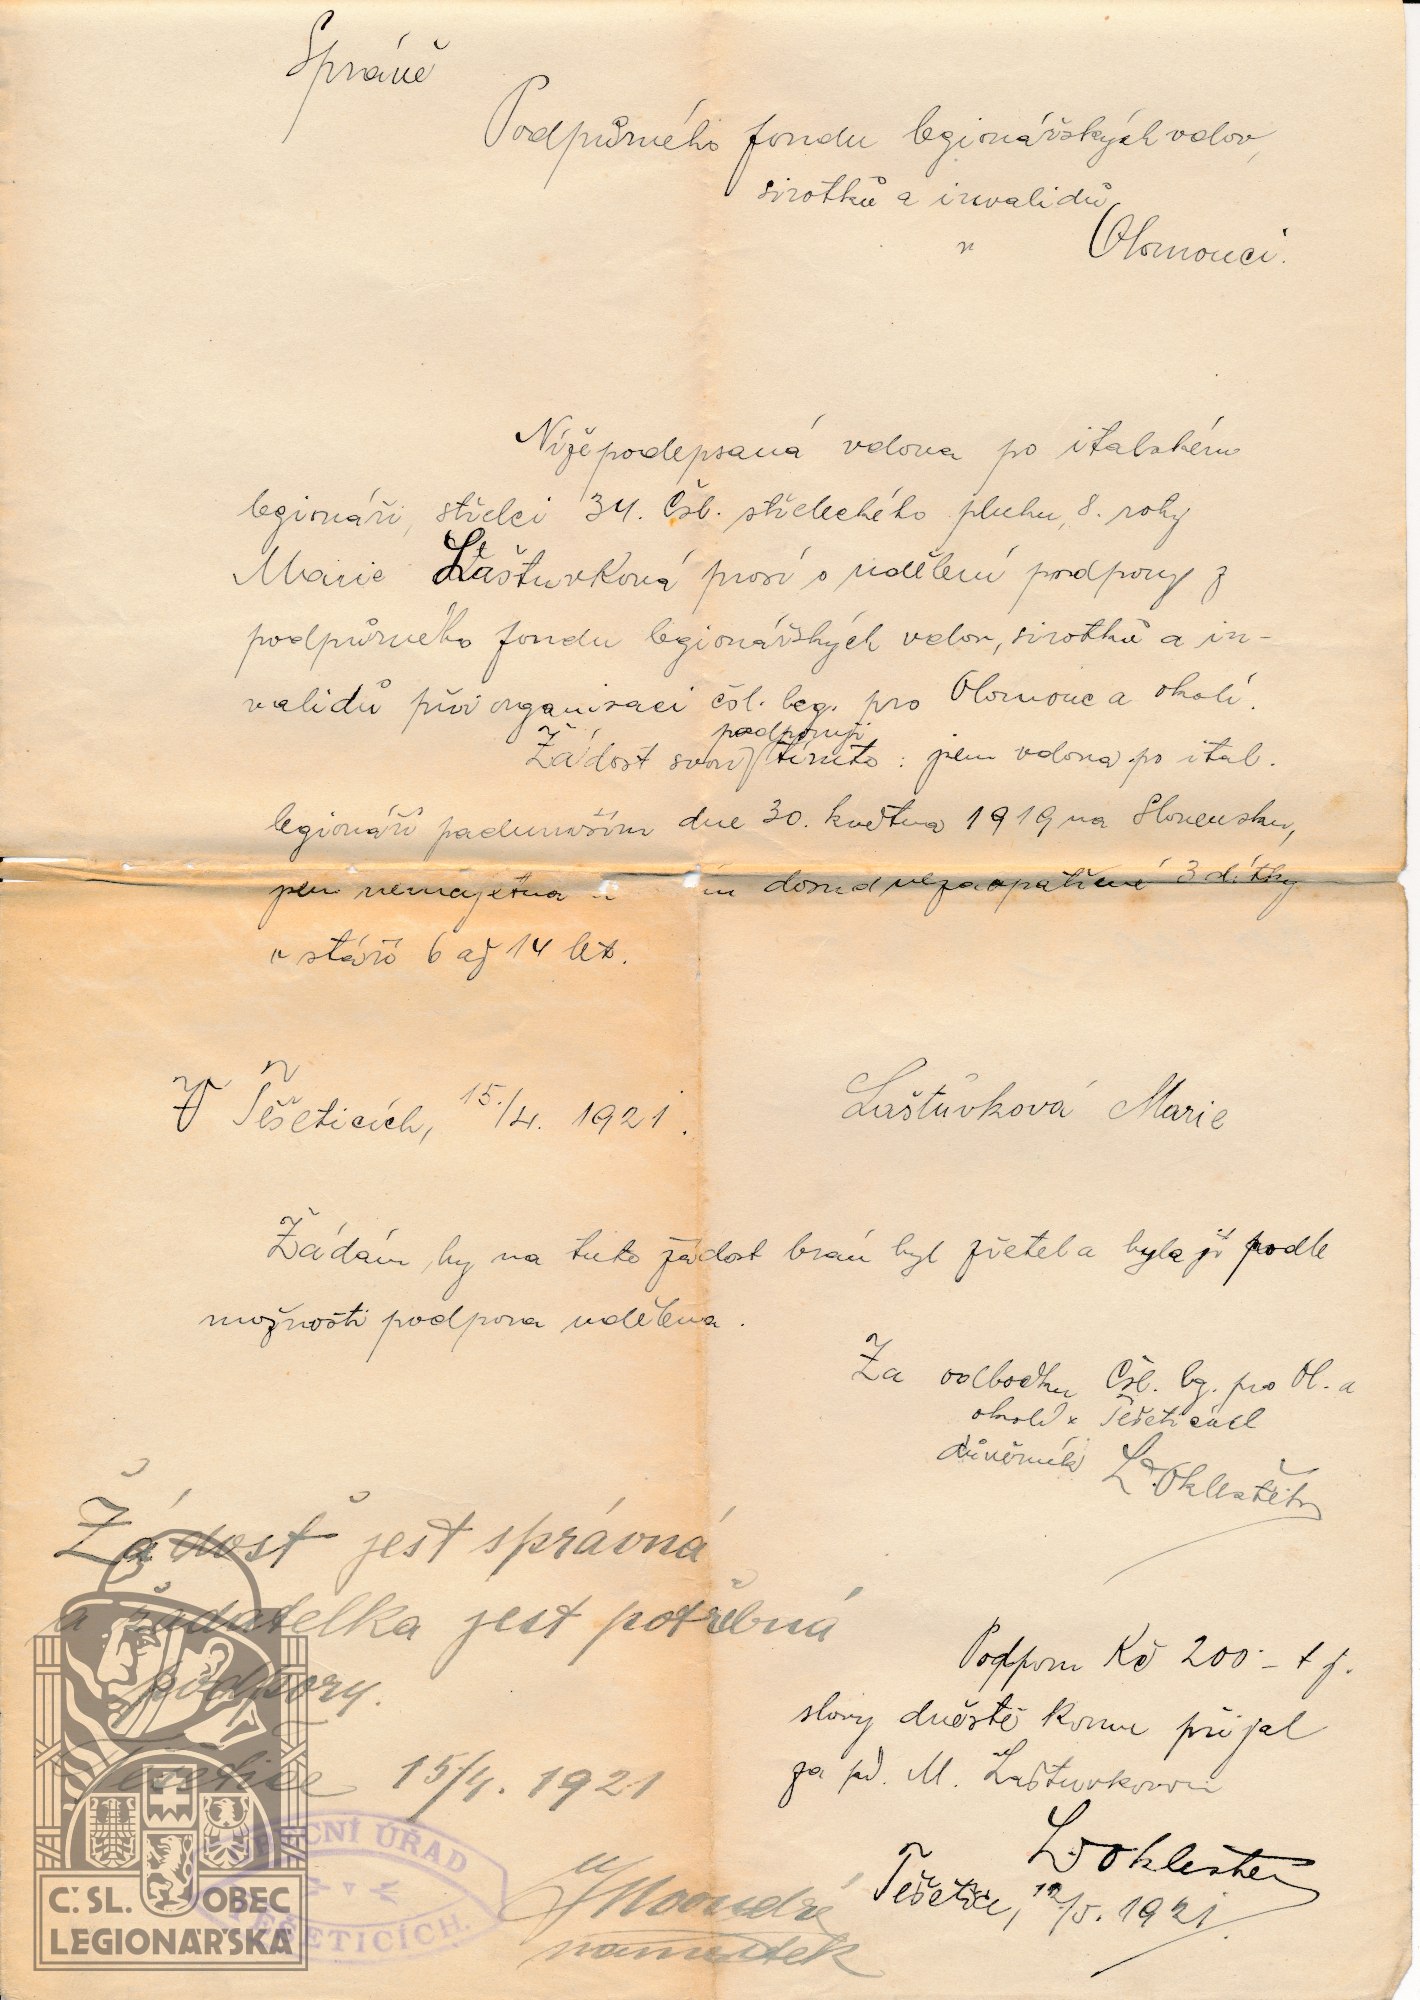 Správě
Podpůrného fondu legionářských vdov,
sirotků a invalidů
v Olomouci.
Nížepodepsaná vdova po italském
legionáři, střelci 34. čsl. střeleckého pluku, 8. roty
Marie Laštuvková prosí o udělení podpory z
podpůrného fondu legionářských vdov, sirotků a in-
validů při organisaci čsl. leg. pro Olomouc a okolí.
podporuji
Žádost svou tímto: jsem vdova po ital.
legionáři padnuvším dne 30. května 1919 na Slovensku,
jsem nemajetna dosud nezaopatřené 3 dítky
v stáří 6 až 14 let.
V Těšeticích, 15./4. 1921.
Laštůvková Marie
Žádám by na tuto žádost braň byl zřetel a byla jí podle
možnosti podpora udělena.
Za odbočku Čsl. leg. pro Ol. a
okolí v Těšeticích
důvěrník
Žádost jest správná
a žadatelka jest potřebná
podpory.
Těšetice 15/4. 1921
Podporu Kč 200 - t j.
slovy dvěstě korun přijal
za pí. M. Laštuvkovou
Těšetice, 12/5. 1921
náměstek
OBECNÍ ÚŘAD
V
TĚŠETICÍCH.
Č.SL. OBEC
LEGIONÁŘSKÁ